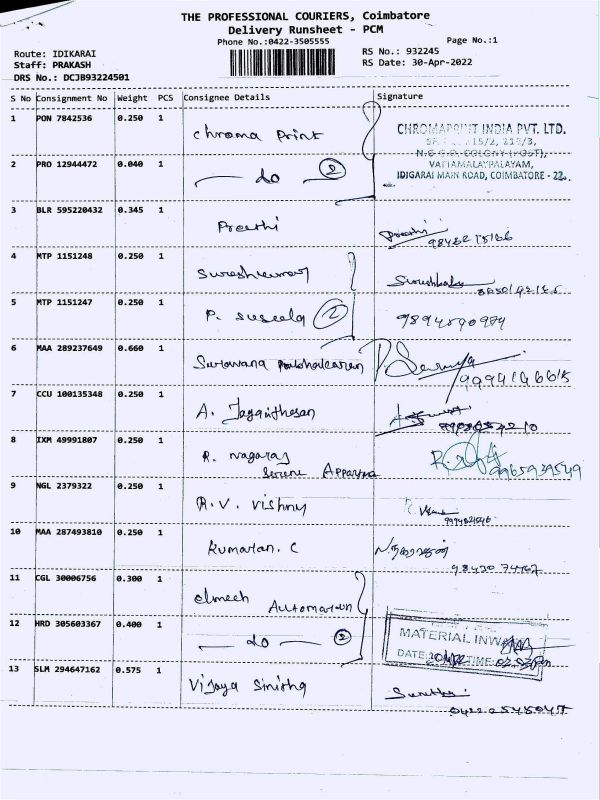 THE PROFESSIONAL COURIERS, Coimbatore
Delivery Runsheet - PCM
Phone No.:0422-3505555
Page No.:1
Route: IDIKARAI
RS No.: 932245
Staff: PRAKASH
RS Date: 30-Apr-2022
DRS No.: DCJB93224501
S No Consignment No Weight PCS Consignee Details Signature
1 PON 7842536 0.250 1 Chroma Print
CHROMAPRINT INDIA PVT. LTD.
VATTAMALAYPALAYAM,
IDIGARAI MAIN ROAD, COIMBATORE - 22.
2 PRO 12944472 0.040 1 do 2
3 BLR 595220432 0.345 1 Preethi Preethi
4 MTP 1151248 0.250 1 Sureshkumar
5 MTP 1151247 0.250 1 P. Suseela 2
6 MAA 289237649 0.660 1
7 CCU 100135348 0.250 1 A.
8 IXM 49991807 0.250 1 R. Nagaraj
Serene
9965939549
9 NGL 2379322 0.250 1 R.V. Vishny
10 MAA 287493810 0.250 1 Kumaran. C
98430 74467
11 CGL 30006756 0.300 1 Elmech Automation
12 HRD 305603367 0.400 1 do 2
MATERIAL INWARD
DATE: TIME:
13 SLM 294647162 0.575 1 Vijaya